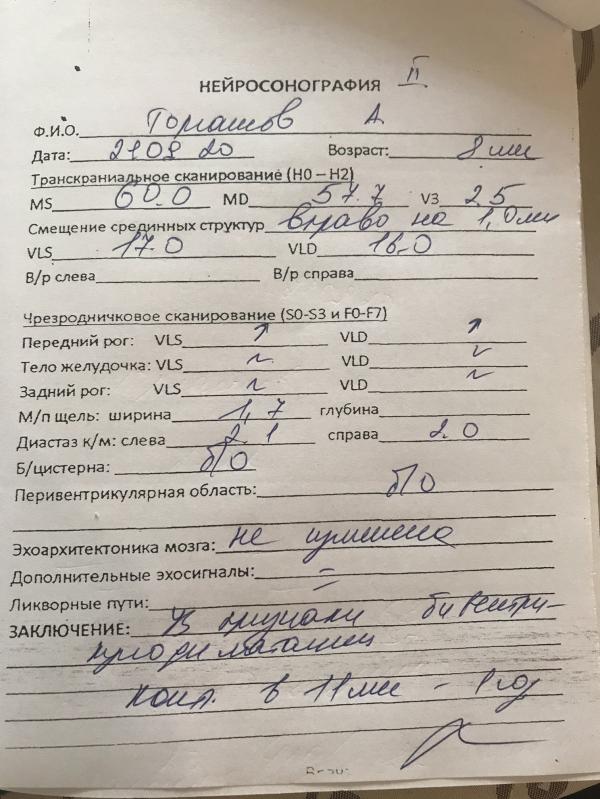 НЕЙРОСОНОГРАФИЯ II
Ф.И.О. Томашов А
Дата: 29 09 20 Возраст: 8 мес
Транскраниальное сканирование (Н0 – Н2)
MS 60.0 MD 57.7 V3 2.5
Смещение срединных структур вправо на 1,0 мм
VLS 17.0 VLD 16.0
В/р слева В/р справа
Чрезродничковое сканирование (S0-S3 и F0-F7)
Передний рог: VLS ↑ VLD ↑
Тело желудочка: VLS ~ VLD
Задний рог: VLS ~ VLD ~
М/п щель: ширина 1,7 глубина
Диастаз к/м: слева 2.1 справа 2.0
Б/цистерна: б/о
Перивентрикулярная область: б/о
Эхоархитектоника мозга: не изменена
Дополнительные эхосигналы: =
Ликворные пути:
ЗАКЛЮЧЕНИЕ: УЗ признаки бивентри-
кулодилатации
в 11 мес – 1 год